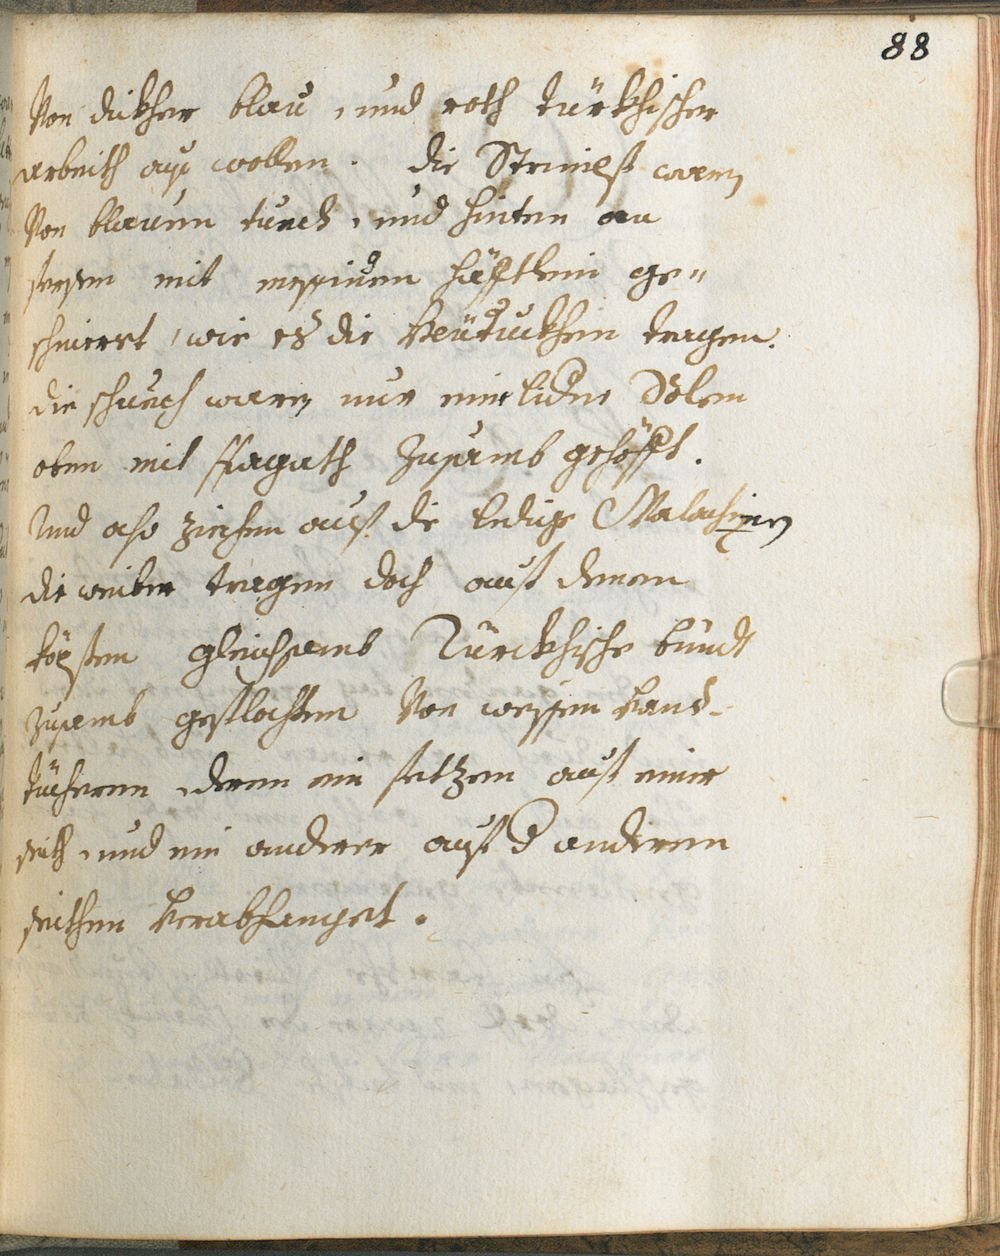 88
Von dickher blau, und roth türkhischer
arbeith auß wollen. die Strimpf waren
Von blauem tuech, und hinten an
fersen mit messinen häfftlein ge=
schniert, wie es die Heüduckhen tragen.
die schuech waren nur eine lidne Solen
oben mit spagath Zusamb gehöfft.
Und also ziehen auf die ledige Malachinen
die weiber tragen doch auf denen
köpfen gleichsamb Türckhische bündt
zusamb geflochten Von weissen hand=
tücheren, deren ein fetzen auf einer
seith, und ein anderer auf d anderen
seithen herabhanget.